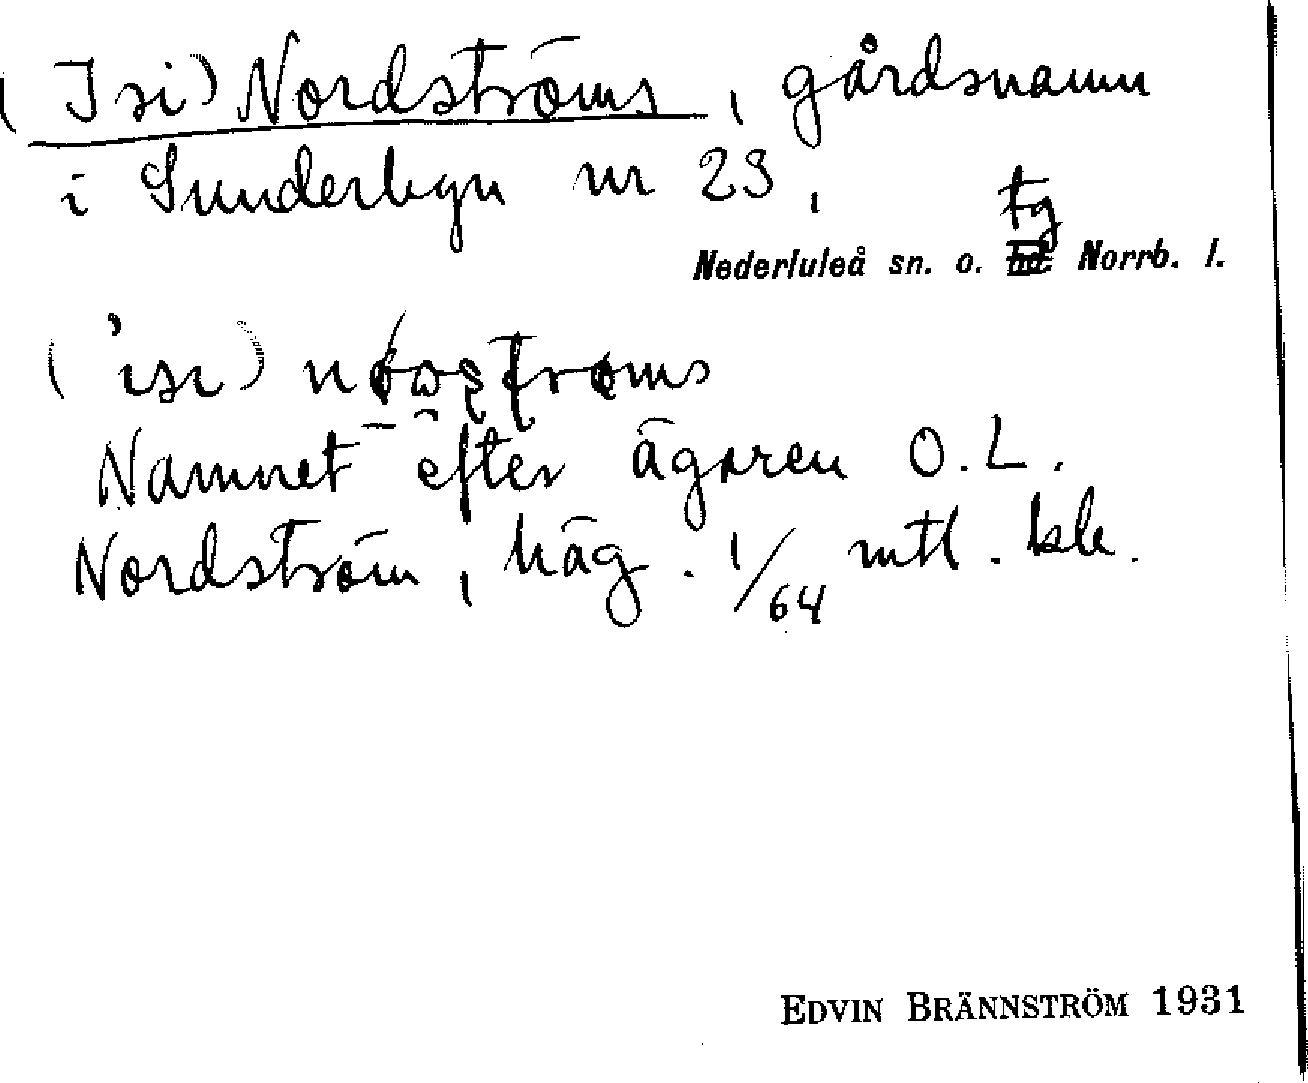 (Isi) Nordströms, gårdsnamn
i Sunderbyn nr 23,
tg
Nederluleå sn. o. Norrb. l.
('isi)
Namnet efter ägaren O. L.
Nordström, häg. 1/64 mtl. kle.
EDVIN BRÄNNSTRÖM 1931